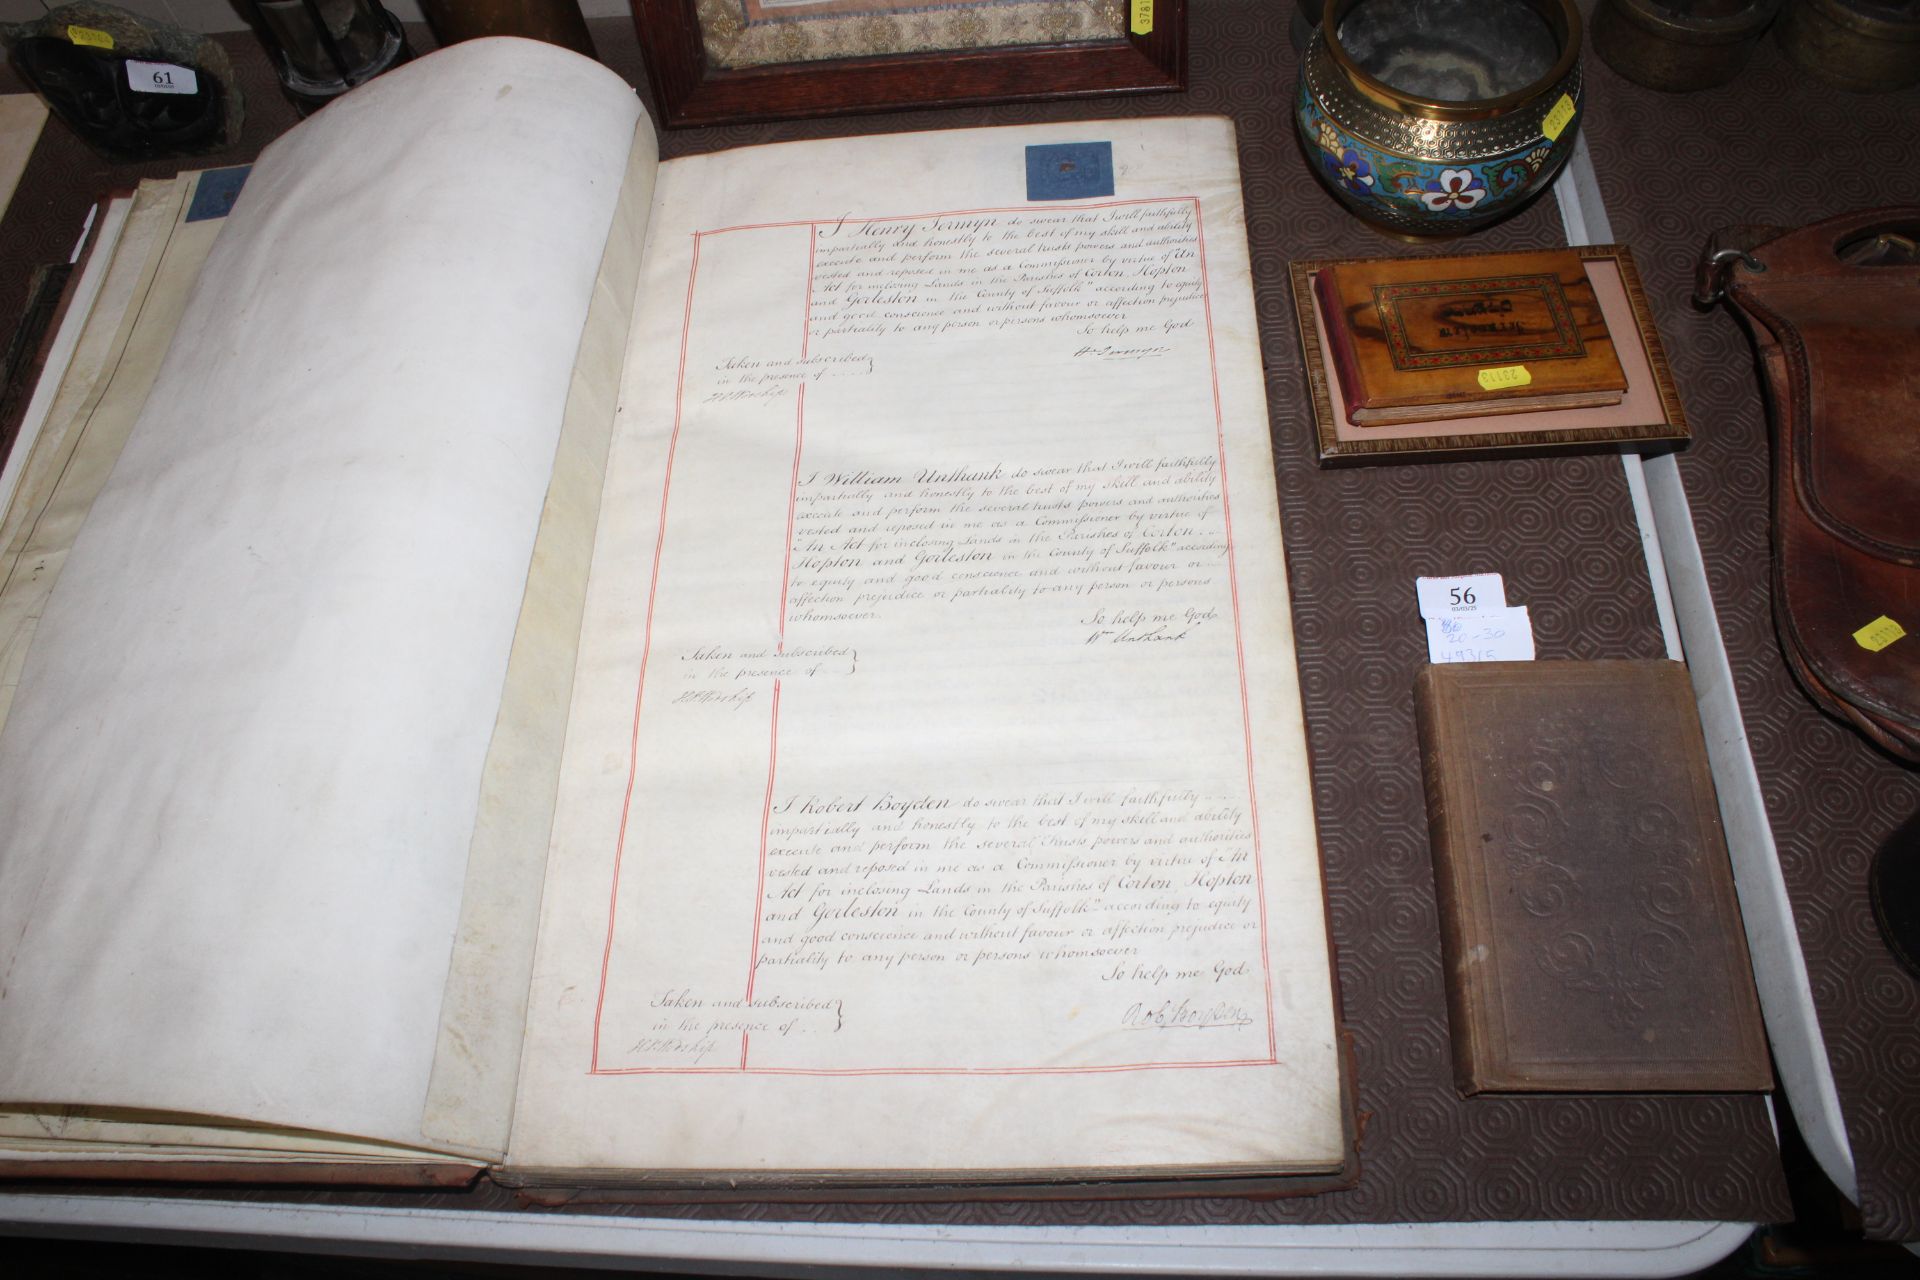 61
I Henry Jermyn do swear that I will faithfully
impartially and honestly to the best of my skill and ability
execute and perform the several trusts powers and authorities
vested and reposed in me as a Commissioner by virtue of "An
Act for inclosing Lands in the Parishes of Corton, Hopton
and Gorleston in the County of Suffolk" according to equity
and good conscience and without favour or affection prejudice
or partiality to any person or persons whomsoever
So help me God
Hy. Jermyn
Taken and subscribed }
in the presence of ....
I William Unthank do swear that I will faithfully
impartially and honestly to the best of my skill and ability
execute and perform the several trusts powers and authorities
vested and reposed in me as a Commissioner by virtue of
"An Act for inclosing Lands in the Parishes of Corton ...
Hopton and Gorleston in the County of Suffolk" according
to equity and good conscience and without favour or ...
affection prejudice or partiality to any person or persons
whomsoever.
So help me God
Wm Unthank
Taken and subscribed }
in the presence of ...
I Robert Boyden do swear that I will faithfully ....
impartially and honestly to the best of my skill and ability
execute and perform the several Trusts powers and authorities
vested and reposed in me as a Commissioner by virtue of "An
Act for inclosing Lands in the Parishes of Corton, Hopton
and Gorleston in the County of Suffolk" according to equity
and good conscience and without favour or affection prejudice or
partiality to any person or persons whomsoever
So help me God
Robt Boyden
Taken and subscribed }
in the presence of ..
23113
56
03/03/25
20-30
49315